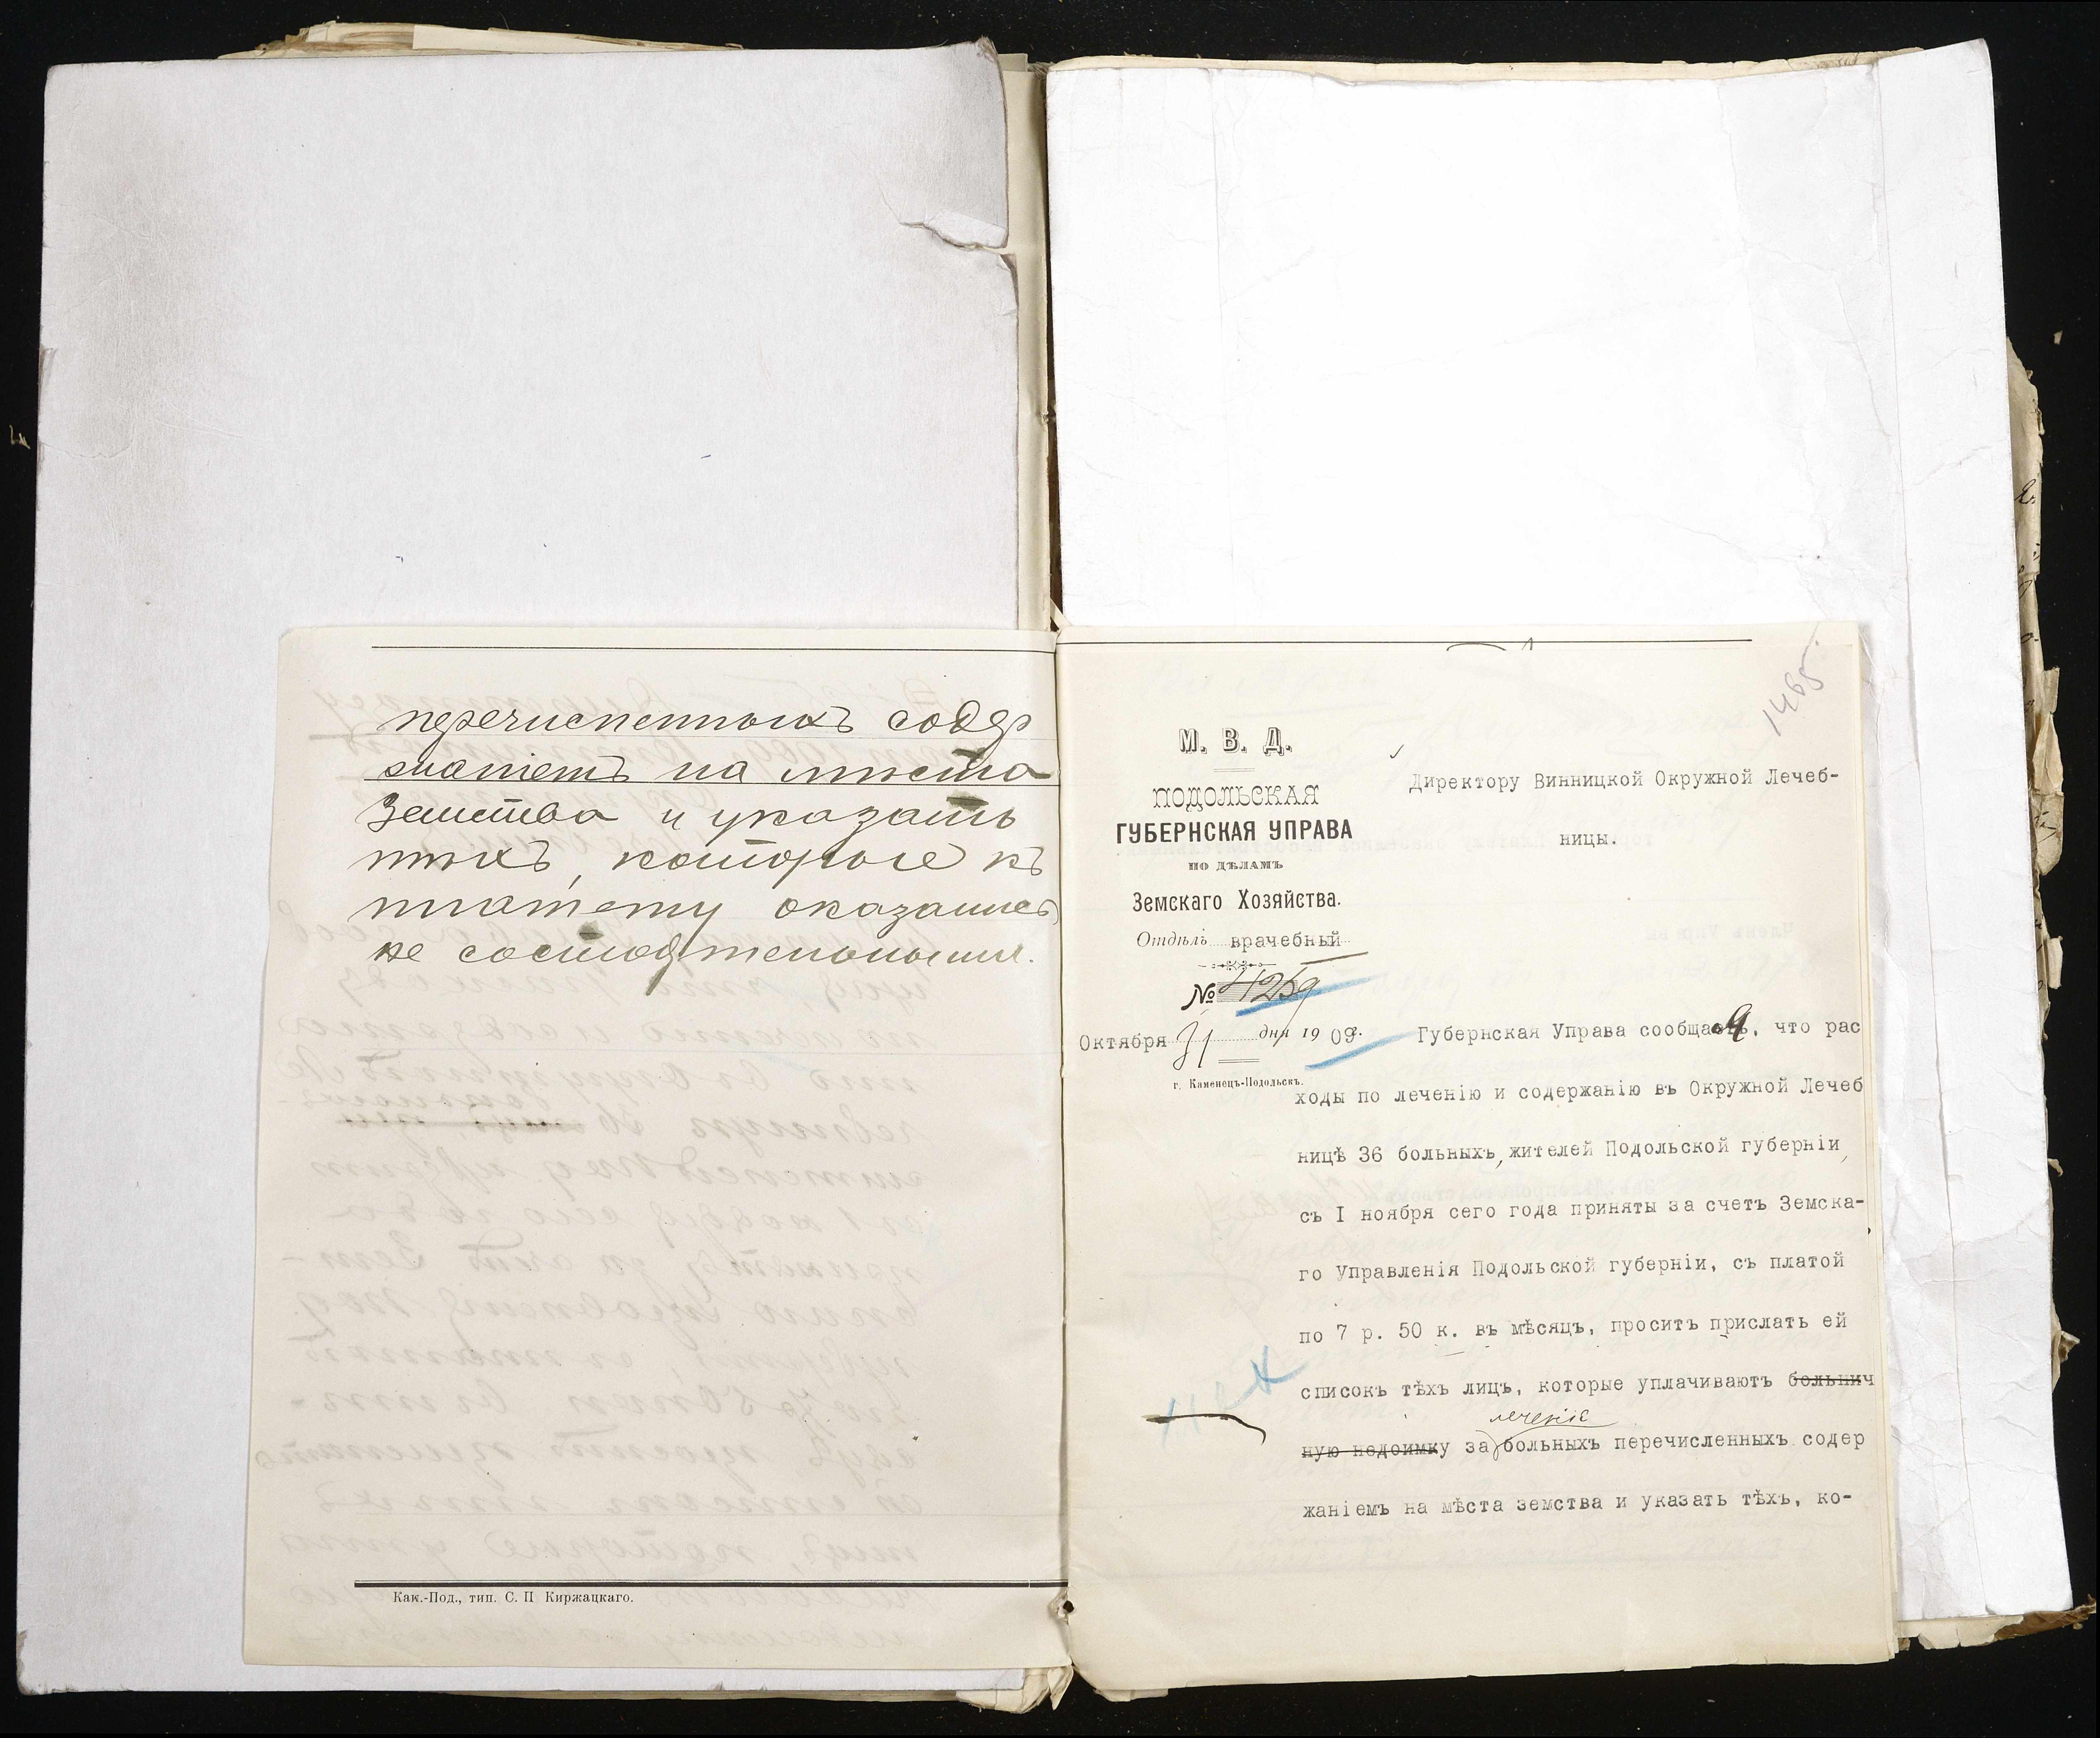 перечисленныхъ содер
жатетъ на мѣста
Земства и указать
тѣхъ, которые къ
платежу оказались
не состоятельными.
Кам.-Под., тип. С. П. Киржацкаго.
1465
М. В. Д.
ПОДОЛЬСКАЯ
ГУБЕРНСКАЯ УПРАВА
ПО ДѢЛАМЪ
Земскаго Хозяйства.
Отдѣлъ врачебный
№ 4259
Октября 31 дня 1909 г.
г. Каменецъ-Подольскъ.
Директору Винницкой Окружной Лечеб-
ницы.
Губернская Управа сообщая, что рас
ходы по леченію и содержанію въ Окружной Лечеб
ницѣ 36 больныхъ, жителей Подольской губерніи,
съ I ноября сего года приняты за счетъ Земска-
го Управленія Подольской губерніи, съ платой
по 7 р. 50 к. въ мѣсяцъ, проситъ прислать ей
списокъ тѣхъ лицъ, которые уплачиваютъ больнич
леченіе
ную недоимку за больныхъ перечисленныхъ содер
жаніемъ на мѣста земства и указать тѣхъ, ко-